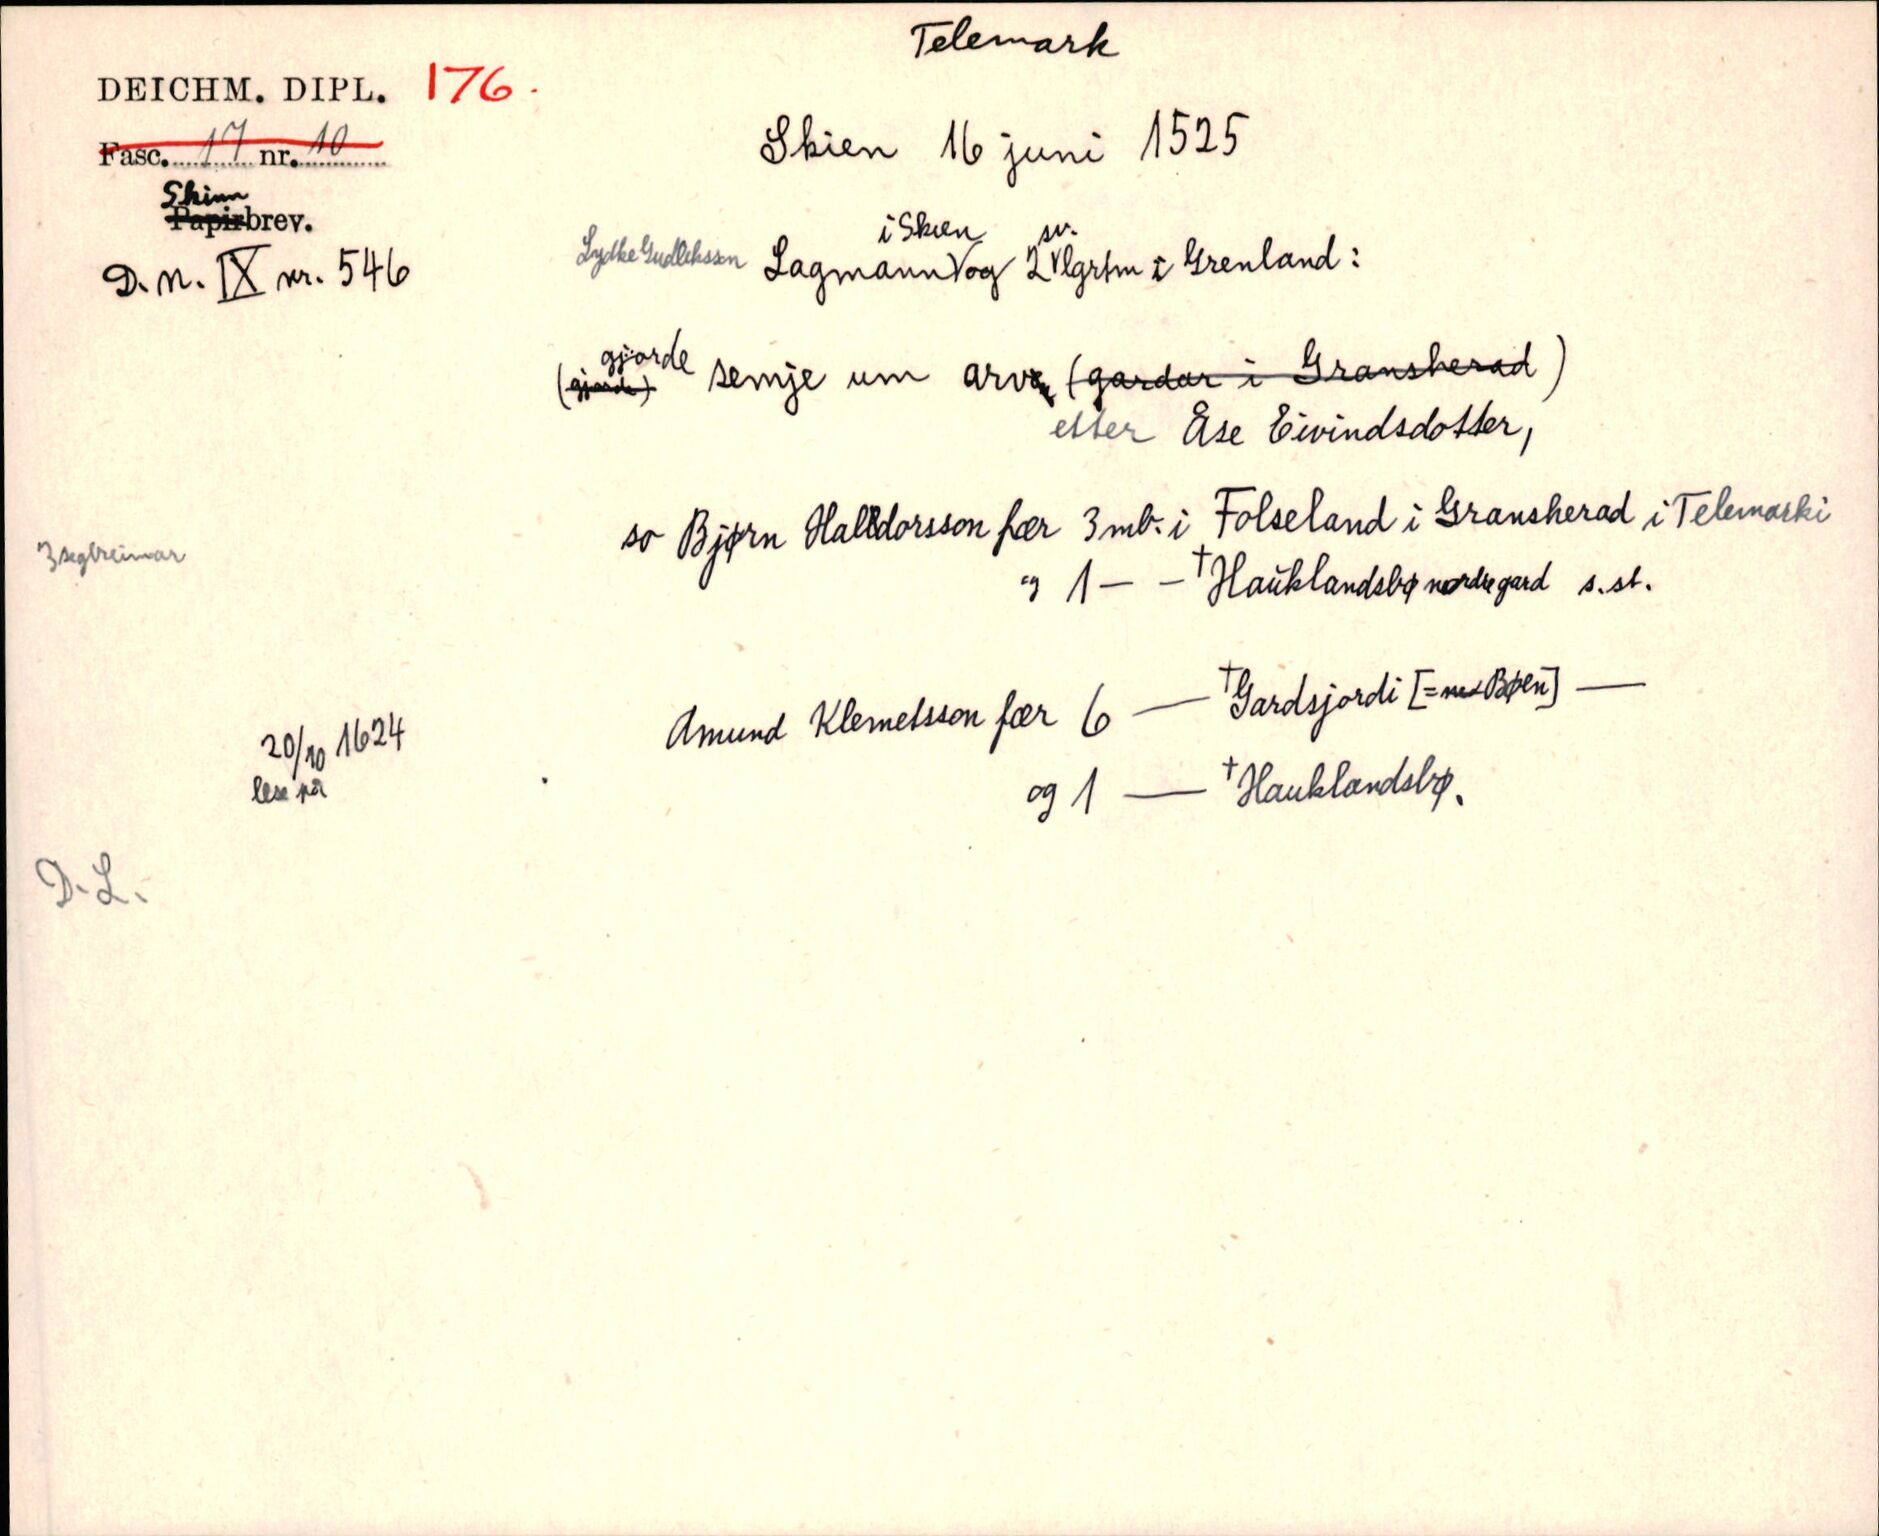 Telemark
DEICHM. DIPL. 176.
Fasc. 17 nr. 10
Skinn
Papirbrev.
D.N. IX nr. 546
Skien 16 juni 1525
i Skien sv.
Lydke Gudleiksson Lagmann og 2 lgrtm i Grenland:
gjorde
(gjorde) semje um arv (gardar i Gransherad)
etter Åse Eivindsdotter,
so Bjørn Halldorsson fær 3 mb. i Folseland i Gransherad i Telemarki
3 seglreimar
og 1 — — †Hauklandsbø nordre gard s.st.
Amund Klemetsson fær 6 — †Gardsjordi [= Bøen] —
20/10 1624
lese på
og 1 — †Hauklandsbø.
D.L.